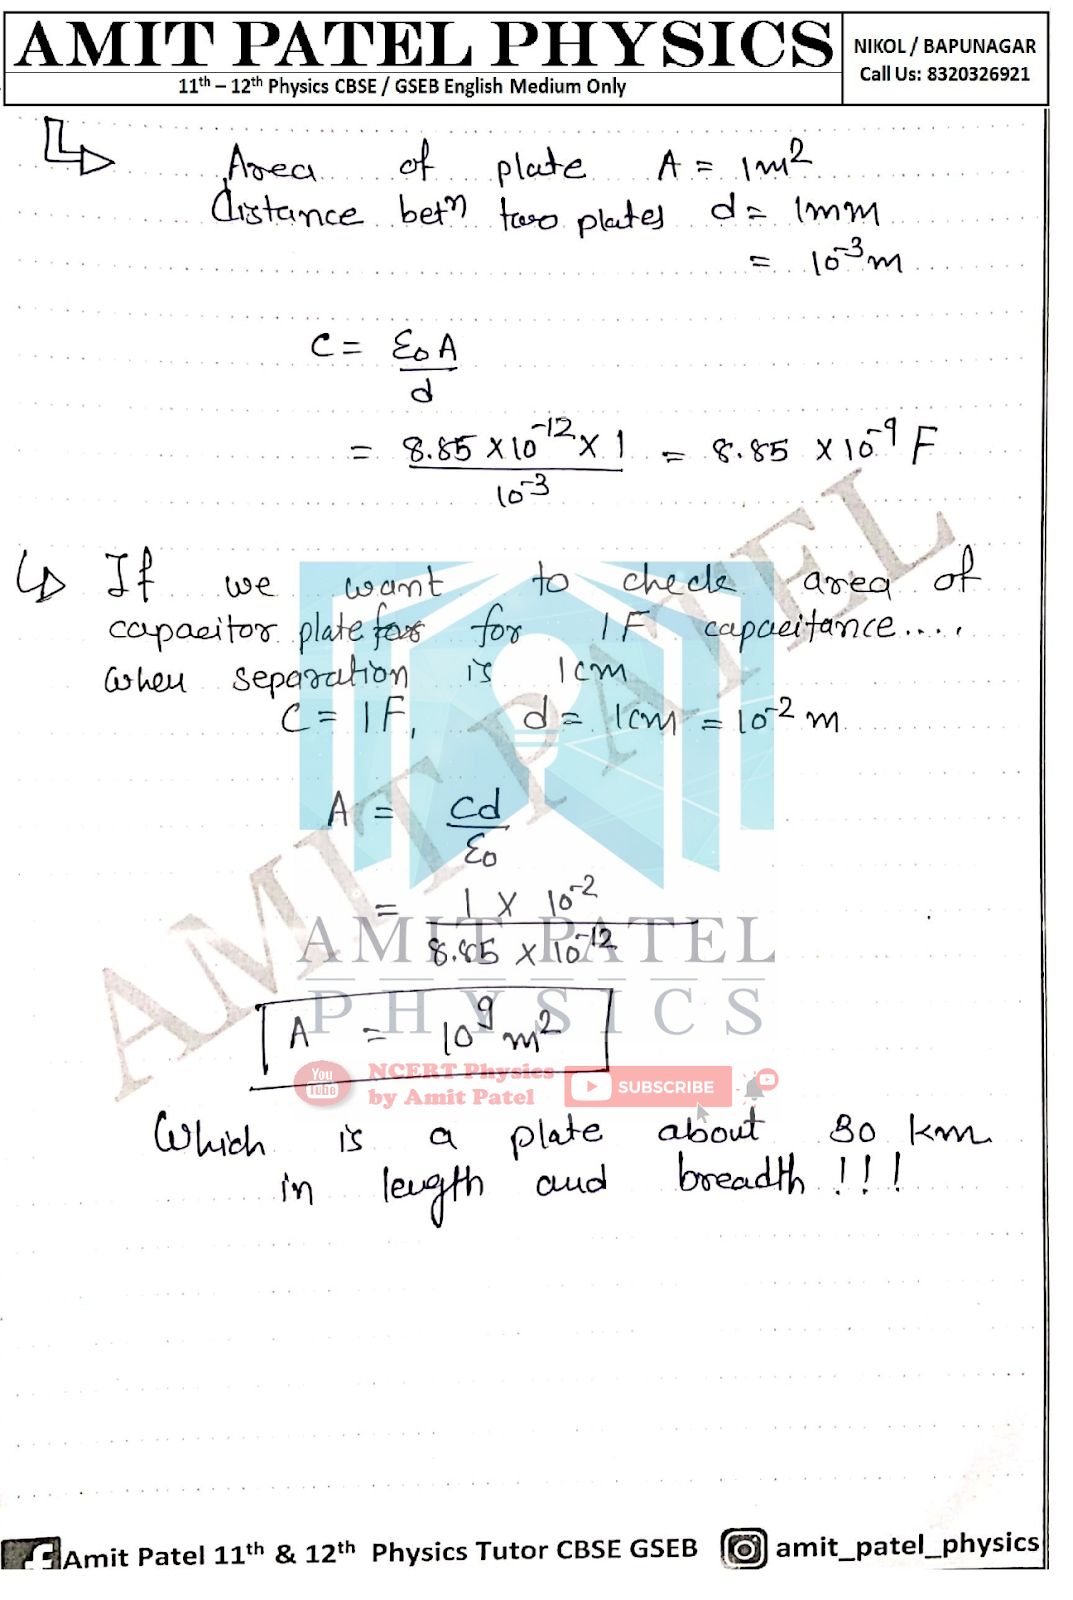 AMIT PATEL PHYSICS
11th – 12th Physics CBSE / GSEB English Medium Only
NIKOL / BAPUNAGAR
Call Us: 8320326921
Area of plate A = 1m²
distance betⁿ two plates d = 1mm
= 10⁻³m
C = ε₀A
d
= 8.85 × 10⁻¹² × 1 = 8.85 × 10⁻⁹ F
10⁻³
If we want to check area of
capacitor plate for for 1F capacitance....
when separation is 1cm
C = 1F, d = 1cm = 10⁻² m
A = Cd
ε₀
= 1 × 10⁻²
8.85 × 10⁻¹²
A = 10⁹ m²
AMIT PATEL
PHYSICS
AMIT PATEL
You
Tube
NCERT Physics
by Amit Patel
SUBSCRIBE
Which is a plate about 30 km
in length and breadth !!!
Amit Patel 11th & 12th Physics Tutor CBSE GSEB
amit_patel_physics